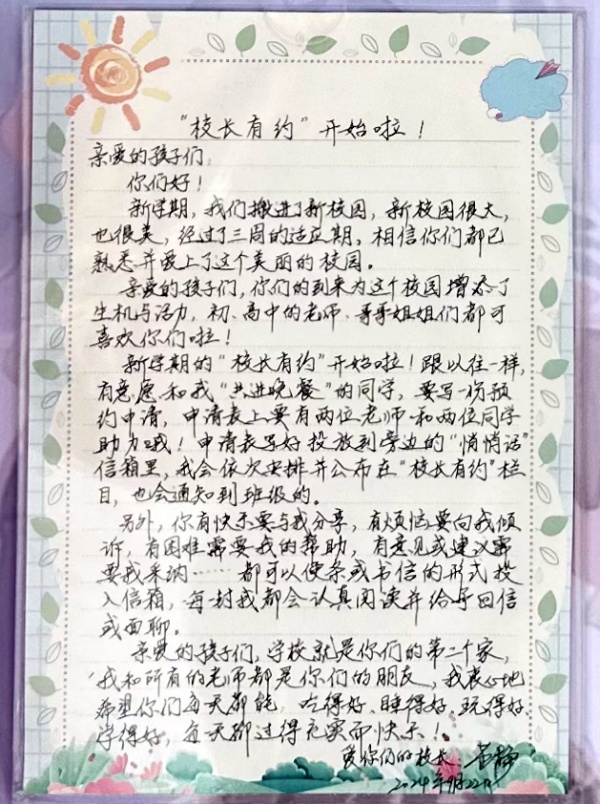 “校长有约”开始啦！
亲爱的孩子们：
你们好！
新学期，我们搬进了新校园，新校园很大，
也很美，经过了三周的适应期，相信你们都已
熟悉并爱上了这个美丽的校园。
亲爱的孩子们，你们的到来为这个校园增添了
生机与活力，初、高中的老师、哥哥姐姐们都可
喜欢你们啦！
新学期的“校长有约”开始啦！跟以往一样，
有意愿和我“共进晚餐”的同学，要写一份预
约申请，申请表上要有两位老师和两位同学
助力哦！申请表写好投放到旁边的“悄悄话”
信箱里，我会依次安排并公布在“校长有约”栏
目，也会通知到班级的。
另外，你有快乐要与我分享，有烦恼要向我倾
诉，有困难需要我的帮助，有意见或建议需
要我采纳……都可以便条或书信的形式投
入信箱，每一封我都会认真阅读并给予回信
或面聊。
亲爱的孩子们，学校就是你们的第二个家，
我和所有的老师都是你们的朋友，我衷心地
希望你们每天都能，吃得好、睡得好、玩得好、
学得好，每天都过得充实而快乐！
爱你们的校长：静
2024年9月22日